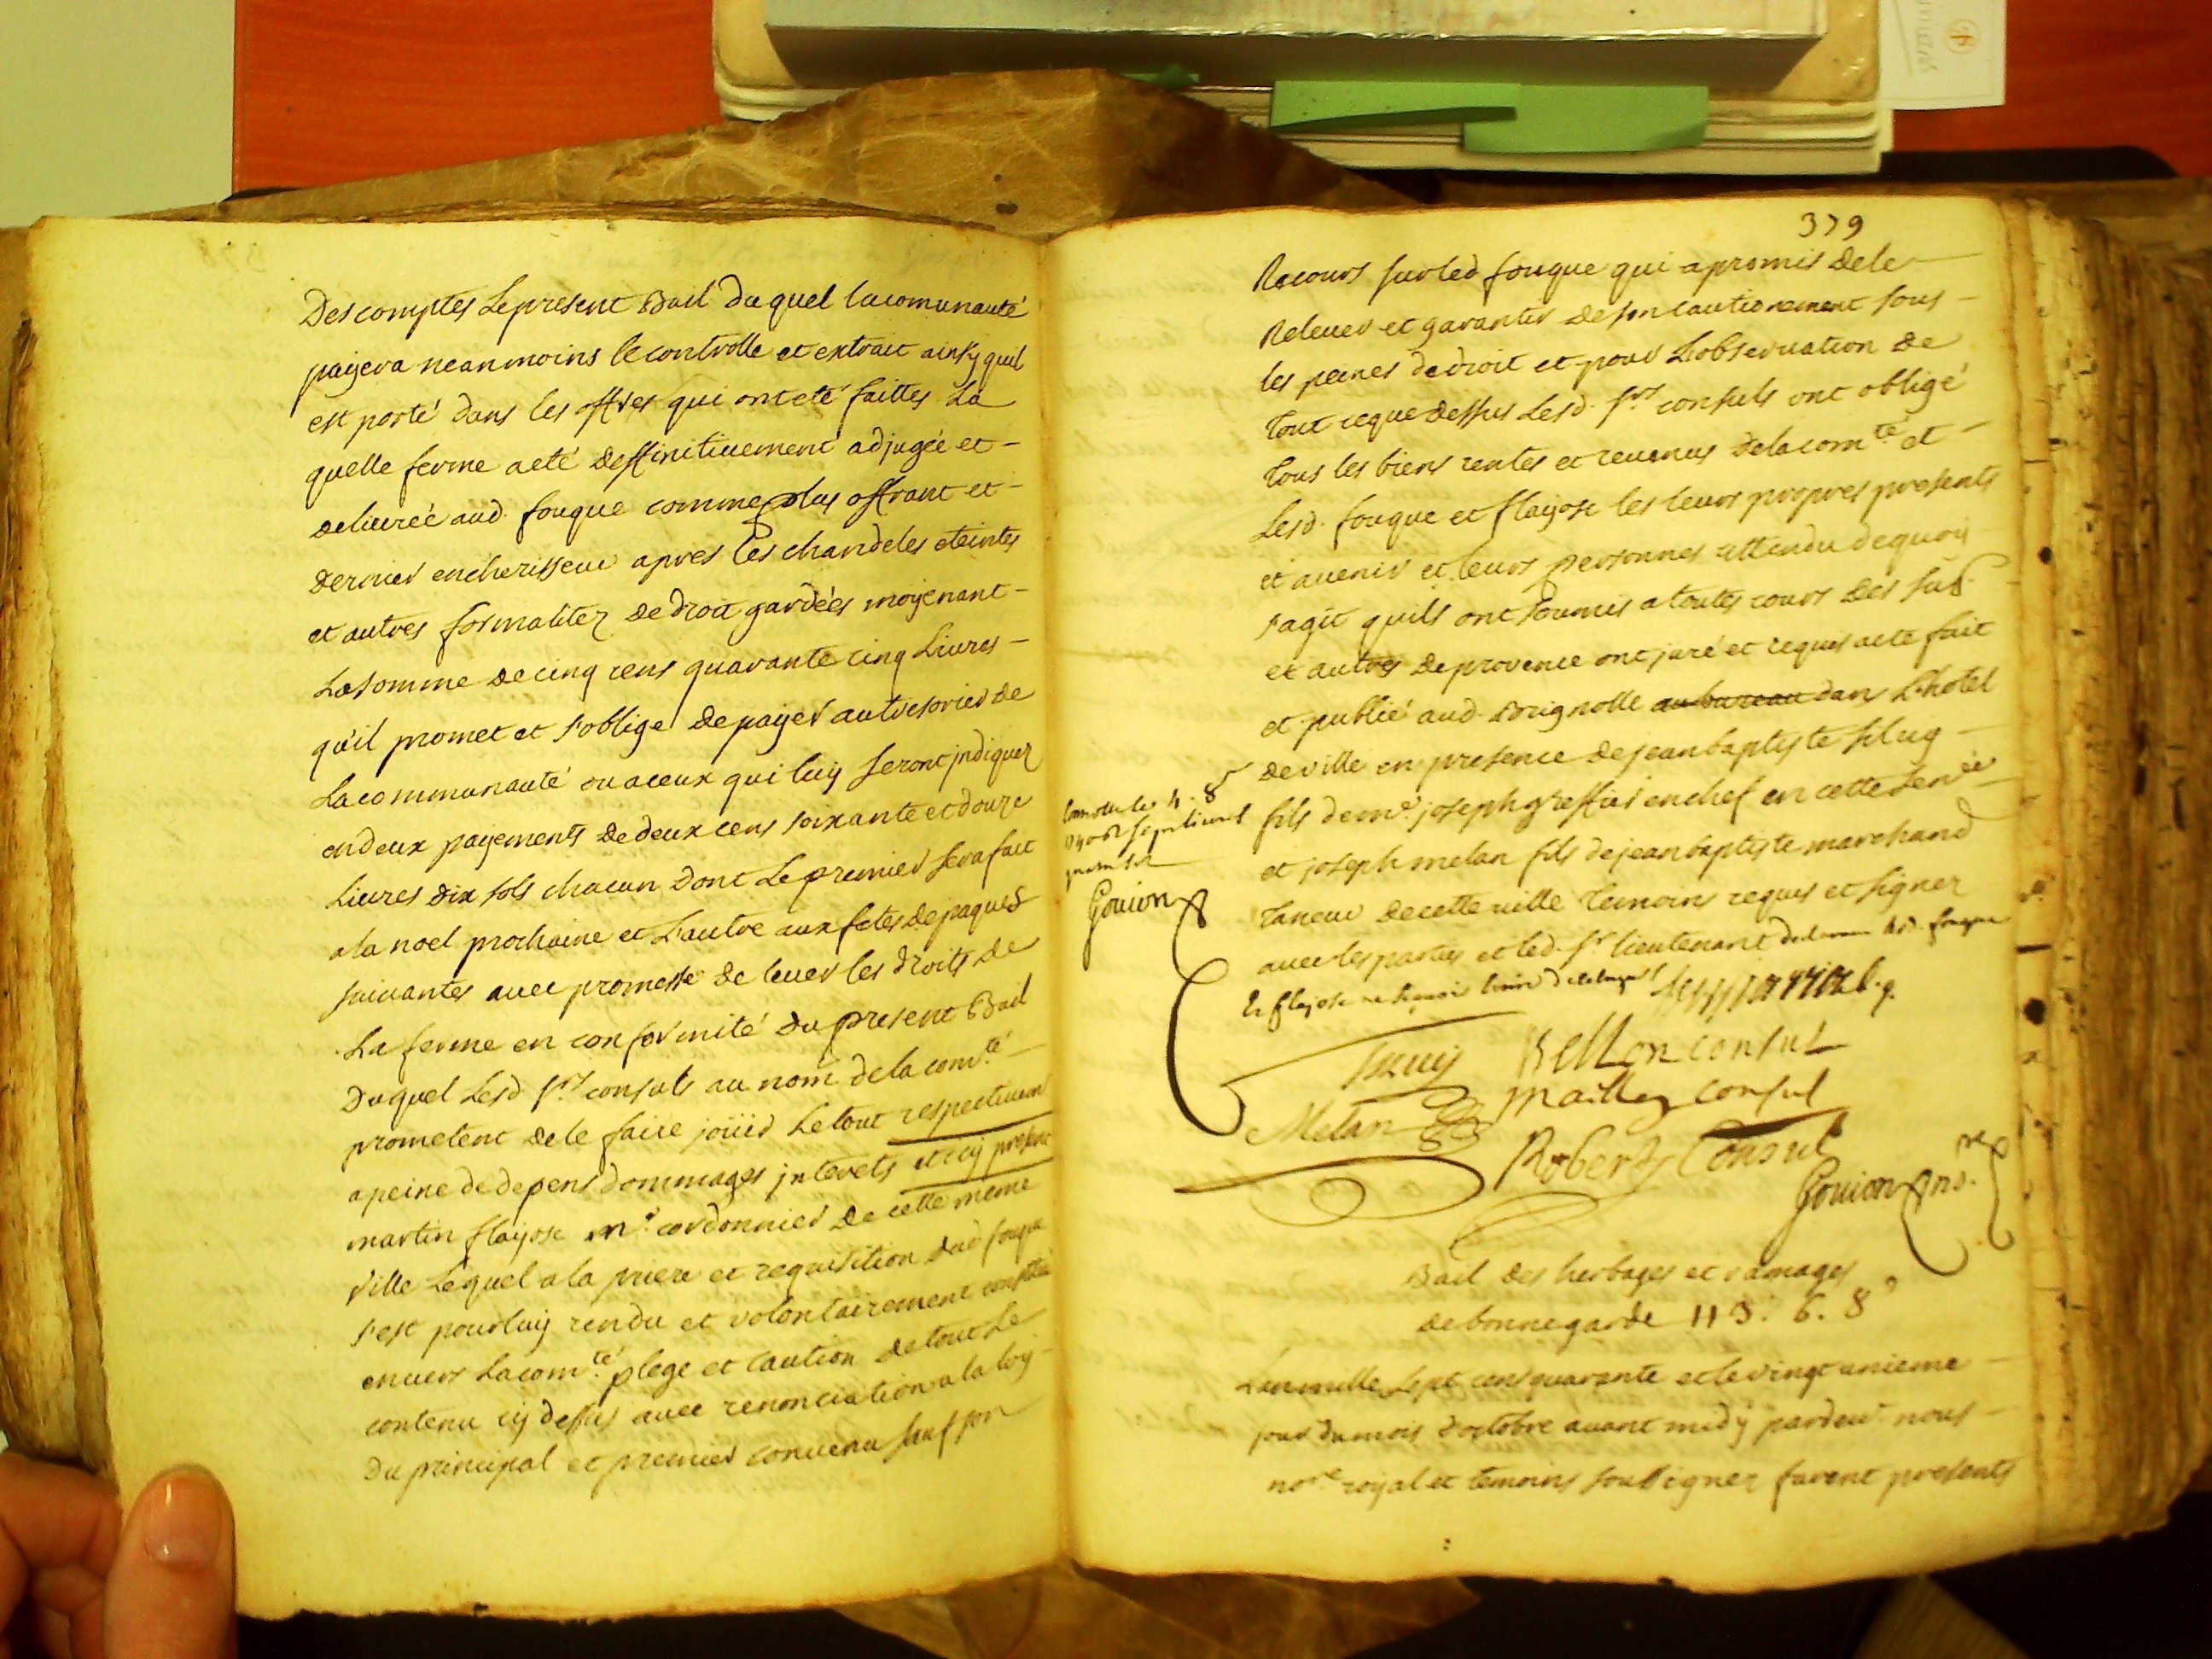 Des comptes Le present Bail du quel la comunauté
payera neanmoins le controlle et extrait ainsy quil
est porté dans les offres qui ont eté faittes La
quelle ferme a eté deffinitivement adjugée et
delivrée aud. fouque comme plus offrant et
dernier encherisseur apres les chandeles eteintes
et autres formalitez de droit gardées moyenant
La somme de cinq cens quarante cinq Livres
qu'il promet et s'oblige de payer au tresorier de
La communauté ou a ceux qui luy seront jndiquez
en deux payements de deux cens soixante et douze
Livres dix sols chacun dont Le premier sera fait
a la noel prochaine et L'autre aux fetes de paques
suivantes avec promesse de lever les droits de
La ferme en conformité du present Bail
Duquel Lesd. srs consuls au nom de la com.té
prometent de le faire joüir Le tout respectivem.t
a peine de depens dommages jnterets et icy present
martin flayosc m.e cordonnier de cette meme
ville Lequel a la priere et requisition dud fouque
s'est pour luy rendu et volontairement constitué
envers La com.té plege et caution de tout Le
contenu cy dessus avec renonciation a la loy
Du principal et premier convenu sauf son
379
Recours sur led fouque qui a promis de le
Relever et garantir de son cautionement sous
les peines de droit et pour L'observation de
Tout ce que dessus Lesd. srs consuls ont obligé
Tous les biens rentes et revenus de la com.té et
Lesd. fouque et flayosc les leurs propres presents
et avenir et leurs personnes attendu de quoy
s'agit quils ont soumis a toutes cours des sus.
et autres de provence ont juré et requis acte fait
et publié aud. Brignolle au bureau dans L'hotel
de ville en presence de jean baptiste
fils de m.e joseph greffier en chef en cette
et joseph melan fils de jean baptiste marchand
Taneur de cette ville Temoins requis et signez
avec les parties et led. sr lieutenant led. fouque
et flayosc ne sçavoir
Gouion
Bellon consul
Maille consul
Melan
Robert Consul
Gouion no.re
Bail des herbages et ramages
de bonnegarde 113. 6. 8
L'an mille sept cens quarante et le vingt unieme
jour du mois d'octobre avant midy pardevt nous
no.re royal et temoins soussignez furent presents